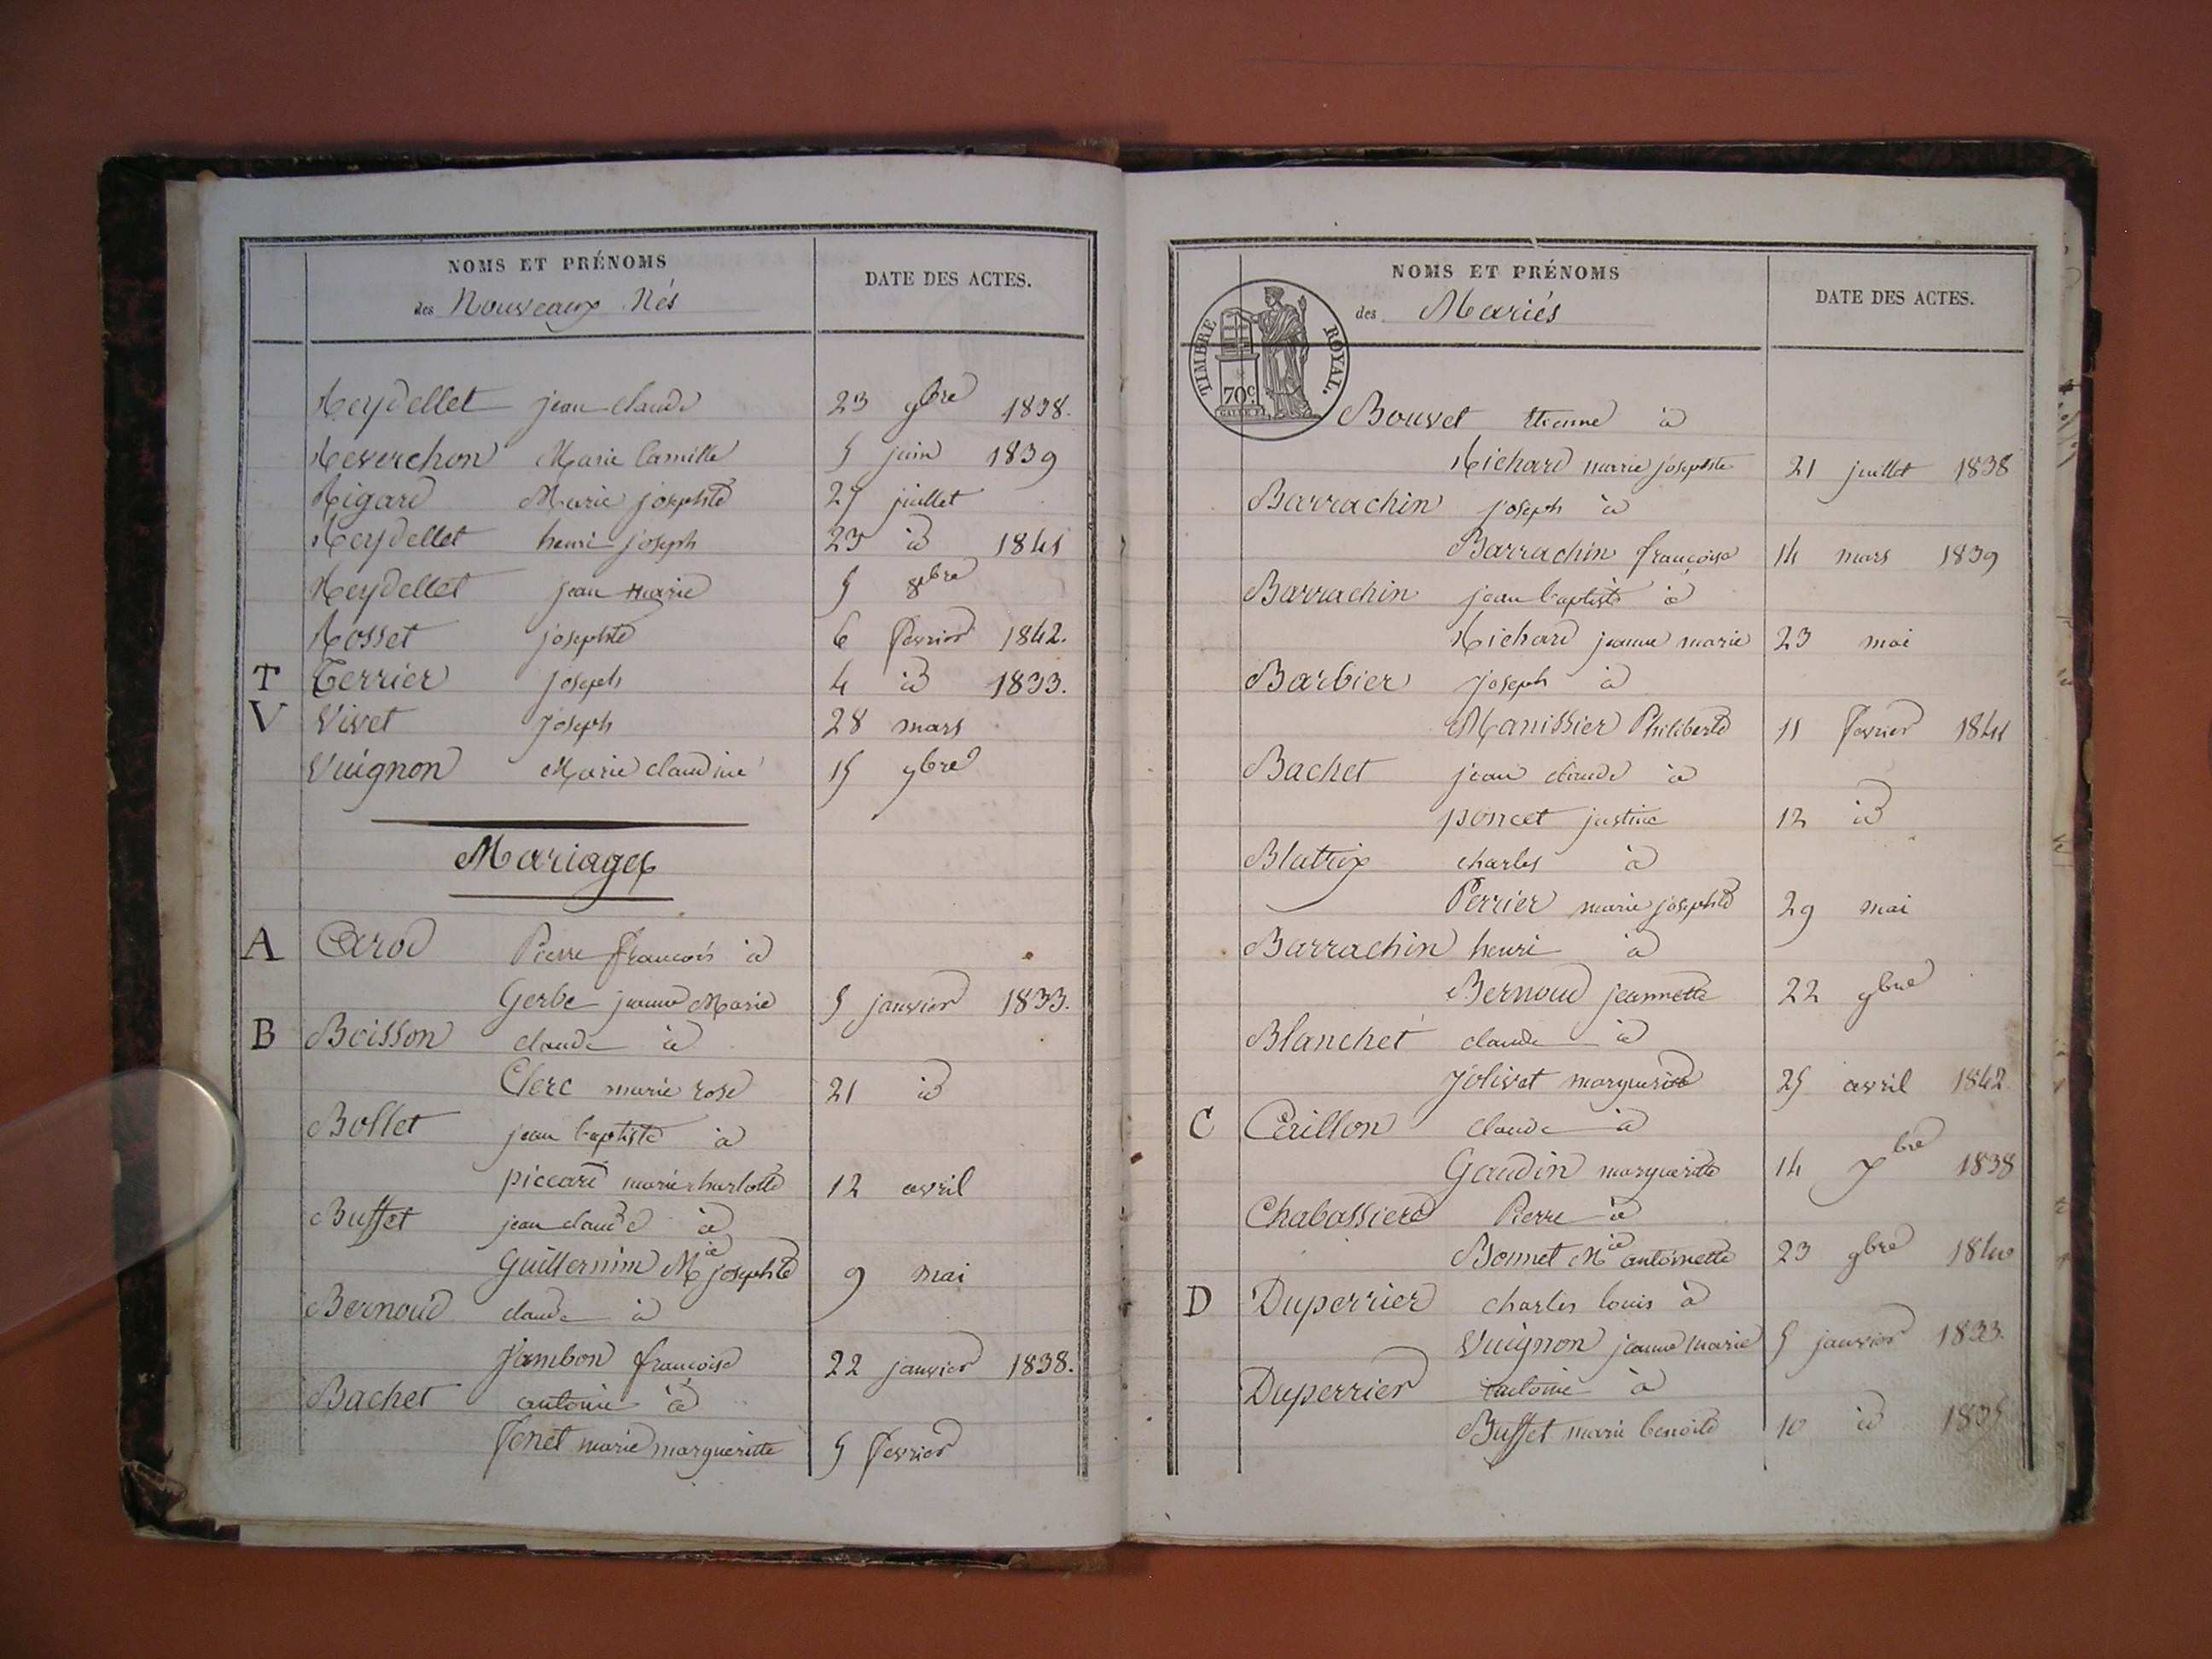 NOMS ET PRÉNOMS
des Nouveaux Nés
DATE DES ACTES.
Reydellet jean claude 23 9bre 1838.
Reverchon Marie Camille 5 juin 1839
Rigard Marie josephte 25 juillet
Reydellet henri joseph 23 id 1841
Reydellet jean marie 5 8bre
Rosset josephte 6 fevrier 1842.
T Terrier joseph 4 id 1833.
V Vivet joseph 28 mars
Vuignon Marie claudine 15 9bre
Mariages
A Arod Pierre françois à
Gerbe jeanne Marie 5 janvier 1833.
B Boisson claude à
Clerc marie rose 21 id
Bollet jean baptiste à
piccard marie charlotte 12 avril
Buffet jean claude à
Guillermin Mie josephte 9 mai
Bernoud claude à
Jambon françoise 22 janvier 1838.
Bachet antoine à
Fenet marie margueritte 5 fevrier
NOMS ET PRÉNOMS
des Mariés
DATE DES ACTES.
TIMBRE ROYAL.
70c.
Bouvet Etienne à
Richard marie josephte 21 juillet 1838
Barrachin joseph à
Barrachin françoise 14 mars 1839
Barrachin jean baptiste à
Richard jeanne marie 23 mai
Barbier joseph à
Manissier Philiberte 11 fevrier 1841
Bachet jean claude à
poncet justine 12 id
Blattrix charles à
Perrier marie josephte 29 mai
Barrachin henri à
Bernoud jeannette 22 9bre
Blanchet claude à
Jolivet marguerite 25 avril 1842.
C Cerillon claude à
Gaudin margueritte 14 7bre 1838
Chabassiere Pierre à
Bonnet Mie antoinette 23 9bre 1840
D Duperrier charles louis à
Vuignon jeanne marie 5 janvier 1833.
Duperrier antoine à
Buffet marie benoite 10 id 1835